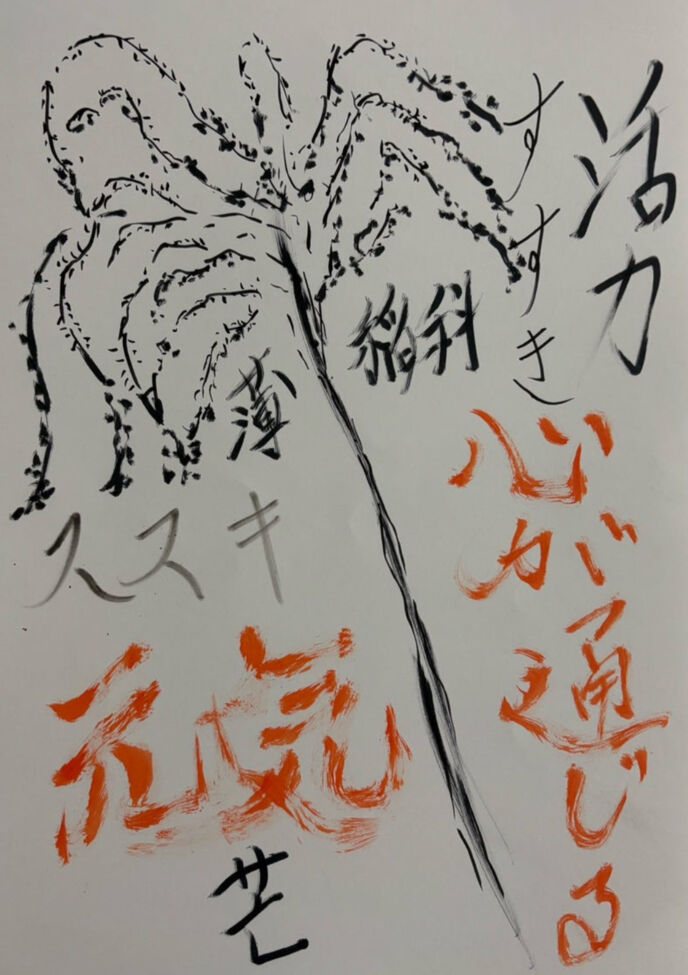 活力
すすき
心が通じる
稲科
薄
ススキ
元気
芒